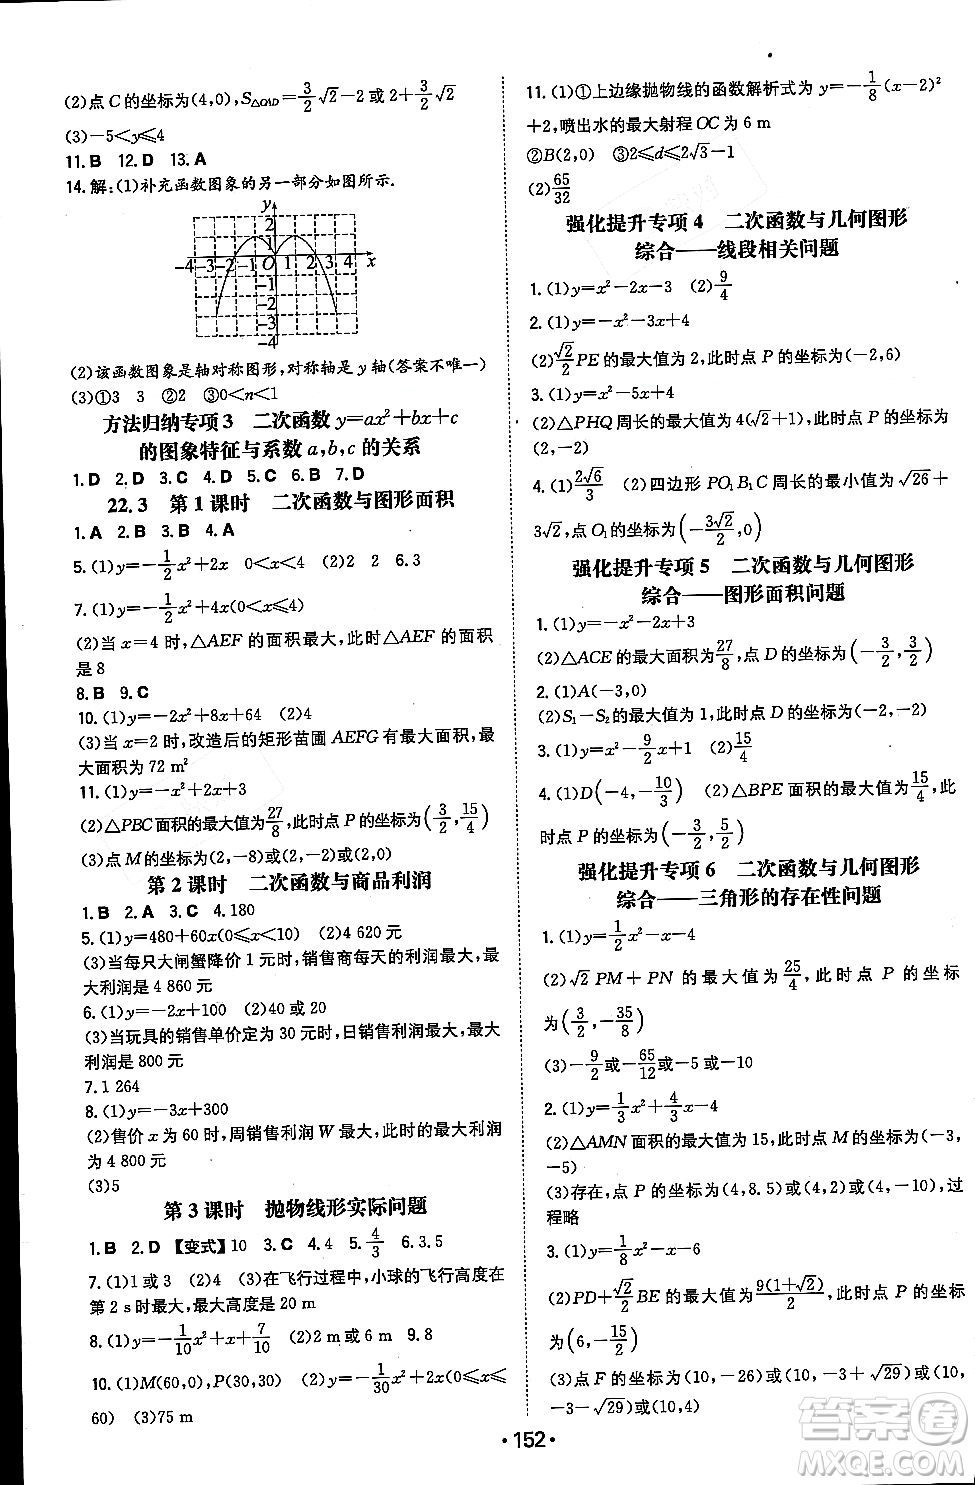 (2)点C的坐标为(4,0),S△OAD=3/2√2-2或2+3/2√2
(3)-5<y⩽4
11.B 12.D 13.A
14.解:(1)补充函数图象的另一部分如图所示.
y
2
1
-4-3-2-1 O 1 2 3 4 x
-1
-2
-3
-4
(2)该函数图象是轴对称图形,对称轴是y轴(答案不唯一)
(3)①3 3 ②2 ③0<n<1
方法归纳专项3 二次函数y=ax²+bx+c
的图象特征与系数a,b,c的关系
1.D 2.D 3.C 4.D 5.C 6.B 7.D
22.3 第1课时 二次函数与图形面积
1.A 2.B 3.B 4.A
5.(1)y=-1/2x²+2x 0<x<4 (2)2 6.3
7.(1)y=-1/2x²+4x(0<x⩽4)
(2)当x=4时,△AEF的面积最大,此时△AEF的面积
是8
8.B 9.C
10.(1)y=-2x²+8x+64 (2)4
(3)当x=2时,改造后的矩形苗圃AEFG有最大面积,最
大面积为72 m²
11.(1)y=-x²+2x+3
(2)△PBC面积的最大值为27/8,此时点P的坐标为(3/2,15/4)
(3)点M的坐标为(2,-8)或(2,2)
第2课时 二次函数与商品利润
1.B 2.A 3.C 4.180
5.(1)y=480+60x(0⩽x⩽10) (2)4 620元
(3)当每只大闸蟹降价1元时,销售商每天的利润最大,最
大利润为4 860元
6.(1)y=-2x+100 (2)40或20
(3)当玩具的销售单价定为30元时,日销售利润最大,最大
利润是800元
7.1 264
8.(1)y=-3x+300
(2)售价x为60时,周销售利润W最大,此时的最大利润
为4 800元
(3)5
第3课时 抛物线形实际问题
1.B 2.D 【变式】10 3.C 4.4 5.4/3 6.3.5
7.(1)1或3 (2)4 (3)在飞行过程中,小球的飞行高度在
第2 s时最大,最大高度是20 m
8.(1)y=-1/10x²+x+7/10 (2)2 m或6 m 9.8
10.(1)M(60,0),P(30,30) (2)y=-1/30x²+2x(0⩽x⩽
60) (3)75 m
11.(1)①上边缘抛物线的函数解析式为y=-1/8(x-2)²
+2,喷出水的最大射程OC为6 m
②B(2,0) ③2⩽d⩽2√3-1
(2)65/32
强化提升专项4 二次函数与几何图形
综合——线段相关问题
1.(1)y=x²-2x-3 (2)9/4
2.(1)y=-x²-3x+4
(2)√2/2PE的最大值为2,此时点P的坐标为(-2,6)
3.(1)y=x²-5x+4
(2)△PHQ周长的最大值为4(√2+1),此时点P的坐标为
(2,-2)
4.(1)2√6/3 (2)四边形PO₁B₁C周长的最小值为√26+
3√2,点O₁的坐标为(-3√2/2,0)
强化提升专项5 二次函数与几何图形
综合——图形面积问题
1.(1)y=-x²-2x+3
(2)△ACE的最大面积为27/8,点D的坐标为(-3/2,3/2)
2.(1)A(-3,0)
(2)S₁-S₂的最大值为4,此时点P的坐标为(-2,-2)
3.(1)y=x²-9/2x+1 (2)15/4
4.(1)D(-4,-10/3) (2)△BPE面积的最大值为15/4,此
时点P的坐标为(-3/2,5/2)
强化提升专项6 二次函数与几何图形
综合——三角形的存在性问题
1.(1)y=1/2x²-x-4
(2)√2PM+PN的最大值为25/4,此时点P的坐标
为(3/2,-35/8)
(3)-9/2或-65/12或-5或-10
2.(1)y=1/3x²+4/3x-4
(2)△AMN面积的最大值为15,此时点M的坐标为(-3,
-5)
(3)存在,点P的坐标为(4,8.5)或(4,2)或(4,-8),过
程略
3.(1)y=1/8x²-x-6
(2)PD+√2/2BE的最大值为9(1+√2)/2,此时点P的坐标
为(6,-15/2)
(3)点F的坐标为(10,-26)或(10,-3+√29)或(10,
-3-√29)或(10,4)
·152·
答案圈
MXQE.COM